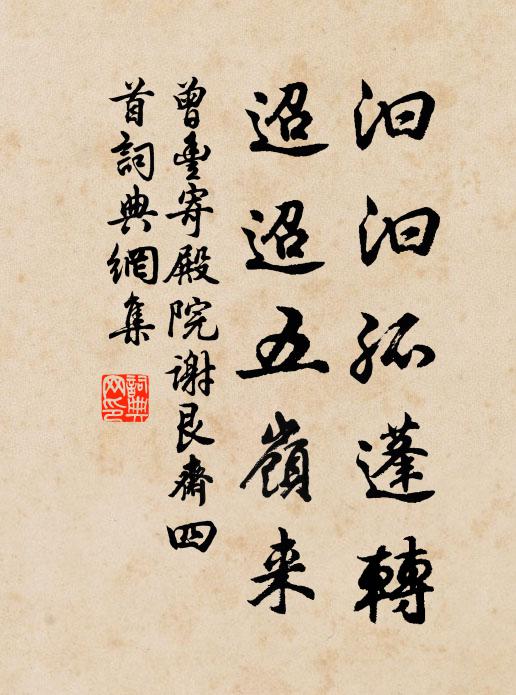 汩汩孤蓬轉
迢迢五嶺来
曾豐寄殿院謝艮齋四
首詞典網集
詞典
网印